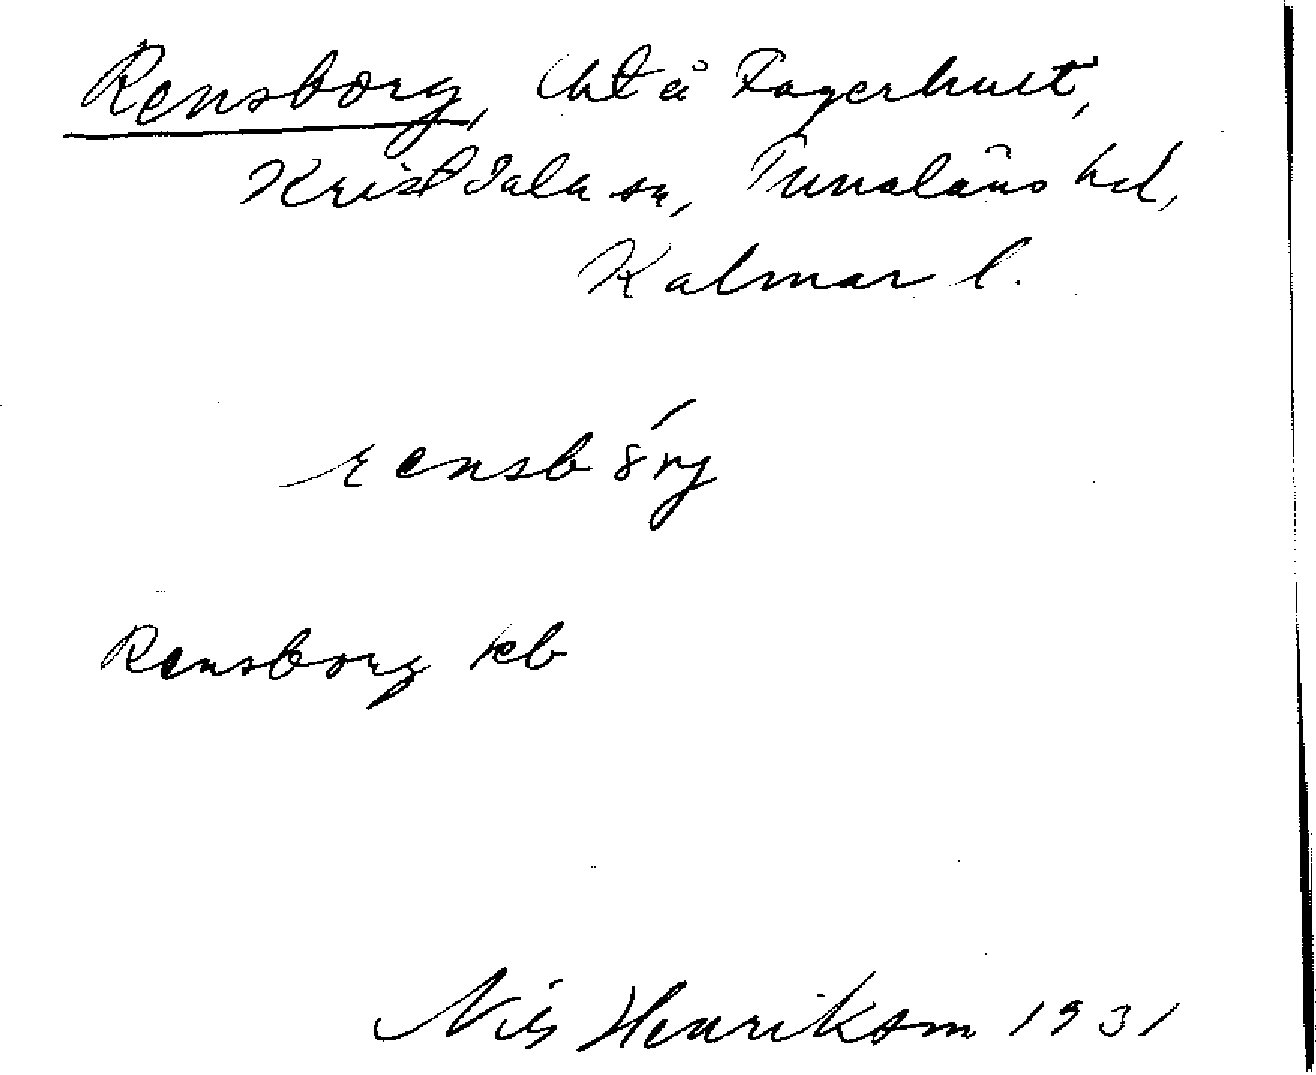 Rensborg, lht å Fagerhult,
Kristdala sn, Tunaläns hd,
Kalmar l.
rensbórg
Rensborg kb
Nils Henrikson 1931